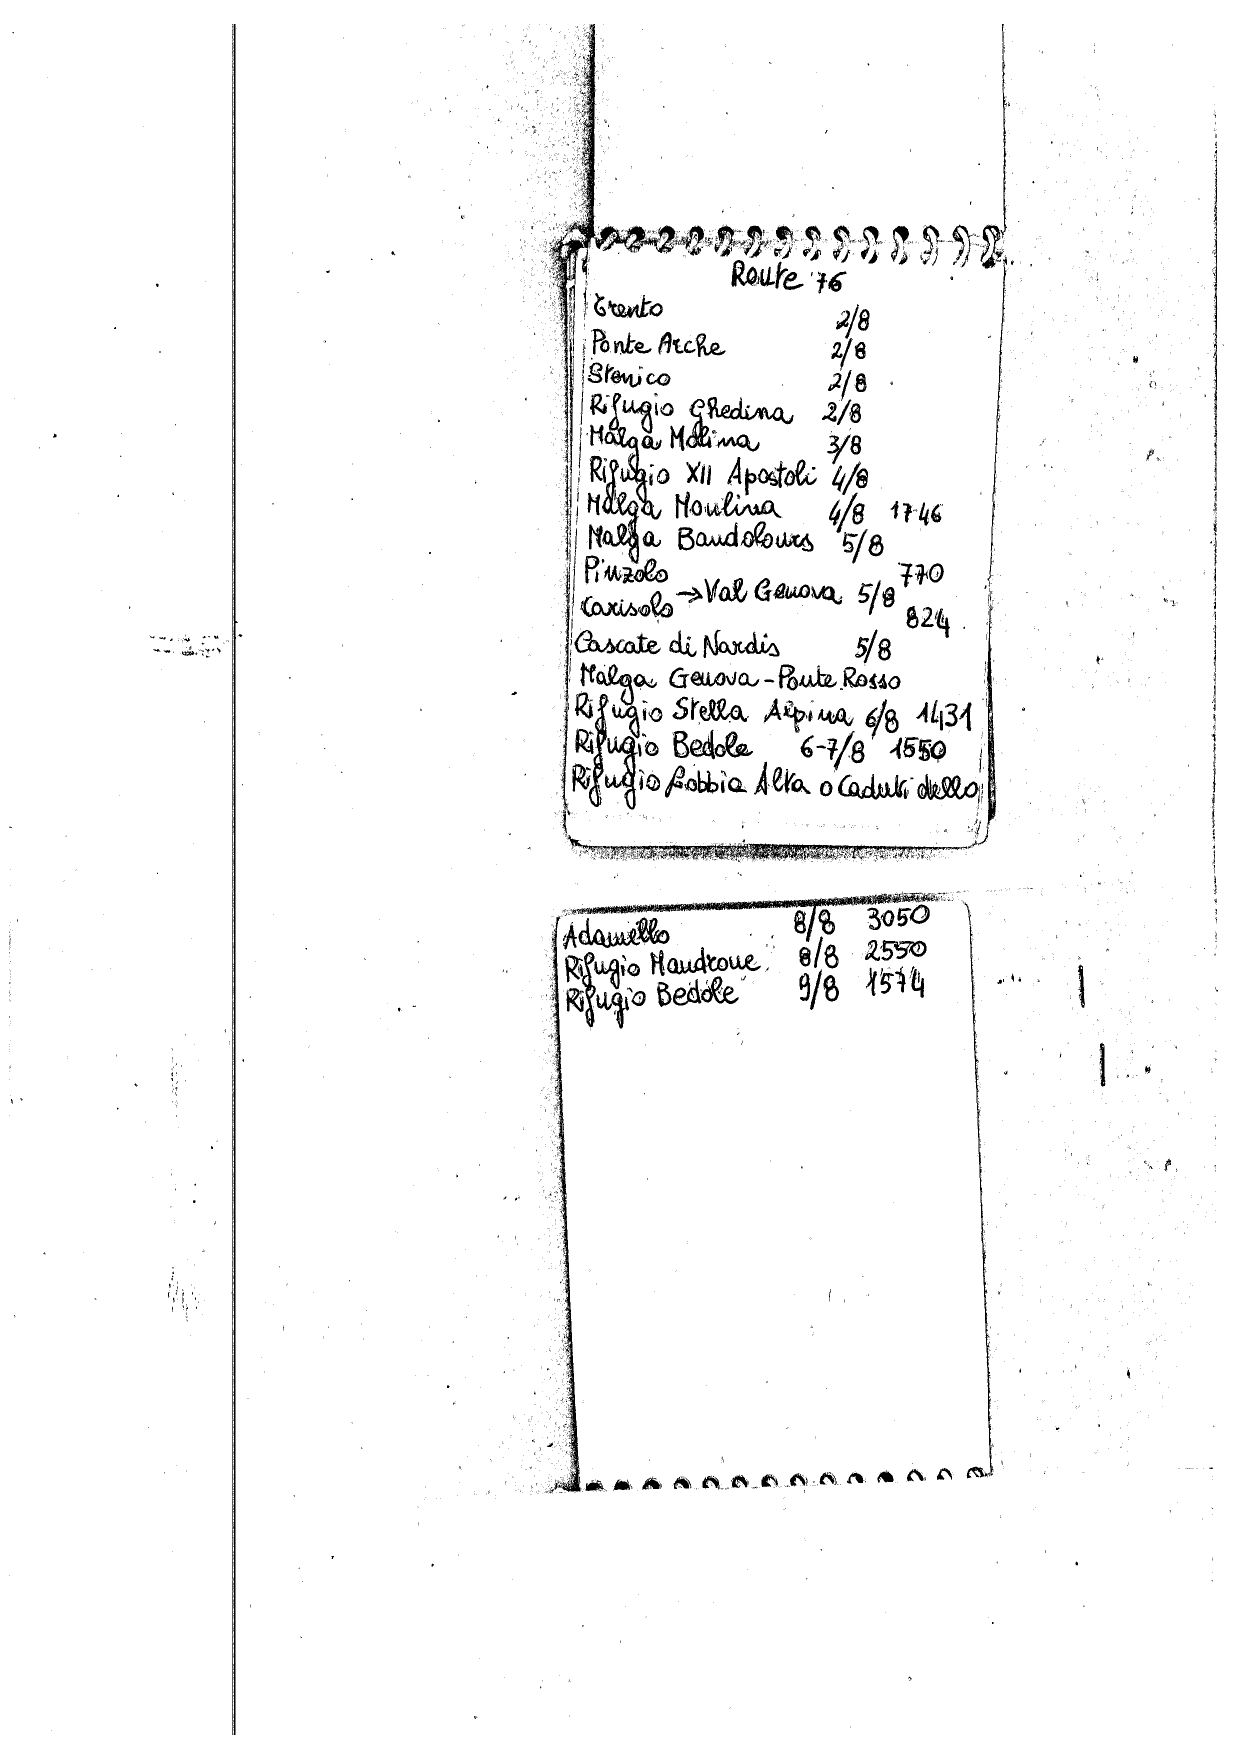 Route '76
Trento 2/8
Ponte Arche 2/8
Stenico 2/8
Rifugio Ghedina 2/8
Malga Molina 3/8
Rifugio XII Apostoli 4/8
Malga Moulina 4/8 1746
Malga Bandolours 5/8
Pinzolo 770
Carisolo → Val Genova 5/8 824
Cascate di Nardis 5/8
Malga Genova - Ponte Rosso
Rifugio Stella Alpina 6/8 1431
Rifugio Bedole 6-7/8 1550
Rifugio Lobbia Alta o Caduti dello
Adamello 8/8 3050
Rifugio Mandrone 8/8 2550
Rifugio Bedole 9/8 1574